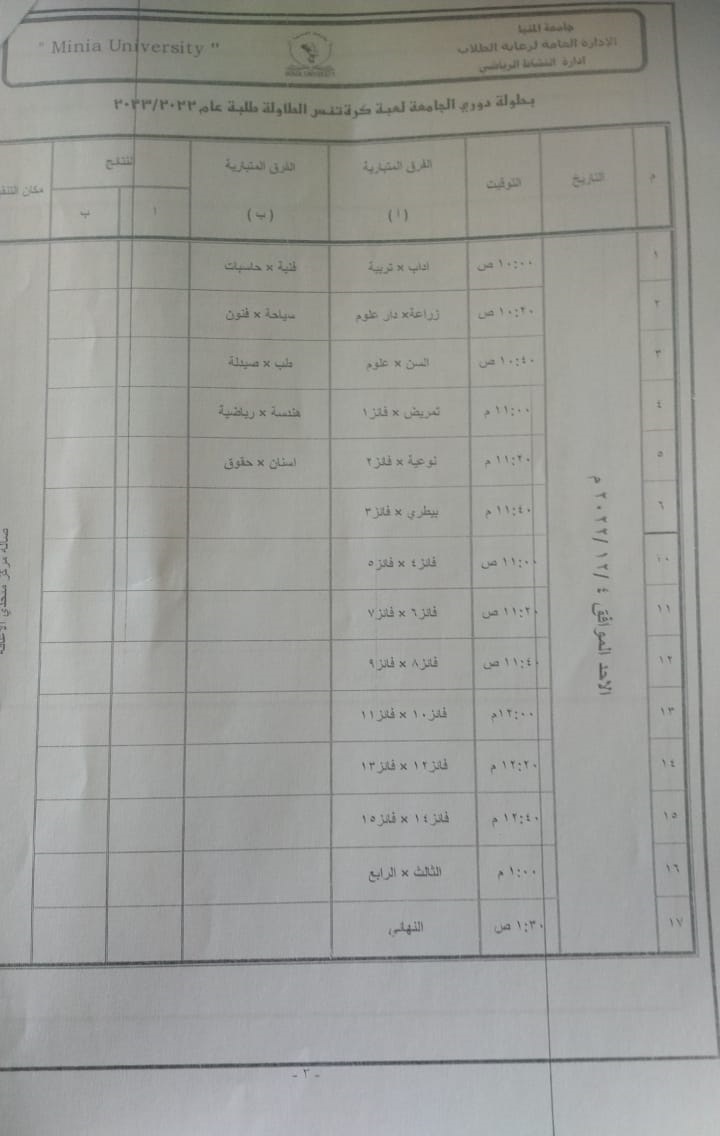 جامعة المنيا
الإدارة العامة لرعاية الطلاب
ادارة النشاط الرياضي
" Minia University "
MINIA UNIVERSITY
بطولة دوري الجامعة لعبة كرة تنس الطاولة طلبة عام ٢٠٢٣/٢٠٢٢
م التاريخ التوقيت الفرق المتبارية (أ) الفرق المتبارية (ب) النتائج أ ب مكان
الاحد الموافق ٢٠٢٢/١٢/٤ م
١ ١٠:٠٠ ص اداب × تربية فنية × حاسبات
٢ ١٠:٢٠ ص زراعة× دار علوم سياحة × فنون
٣ ١٠:٤٠ ص السن × علوم طب × صيدلة
٤ ١١:٠٠ م تمريض × فائز١ هندسة × رياضية
٥ ١١:٢٠ م نوعية × فائز٢ اسنان × حقوق
٦ ١١:٤٠ م بيطري × فائز٣
١٠ ١١:٠٠ ص فائز٤ × فائز٥
١١ ١١:٢٠ ص فائز٦ × فائز٧
١٢ ١١:٤٠ ص فائز٨ × فائز٩
١٣ ١٢:٠٠م فائز١٠ × فائز١١
١٤ ١٢:٢٠ م فائز١٢ × فائز١٣
١٥ ١٢:٤٠ م فائز١٤ × فائز١٥
١٦ ١:٠٠ م الثالث × الرابع
١٧ ١:٣٠ ص النهائي
صالة مركز متحدي الاعاقة
- ٢ -